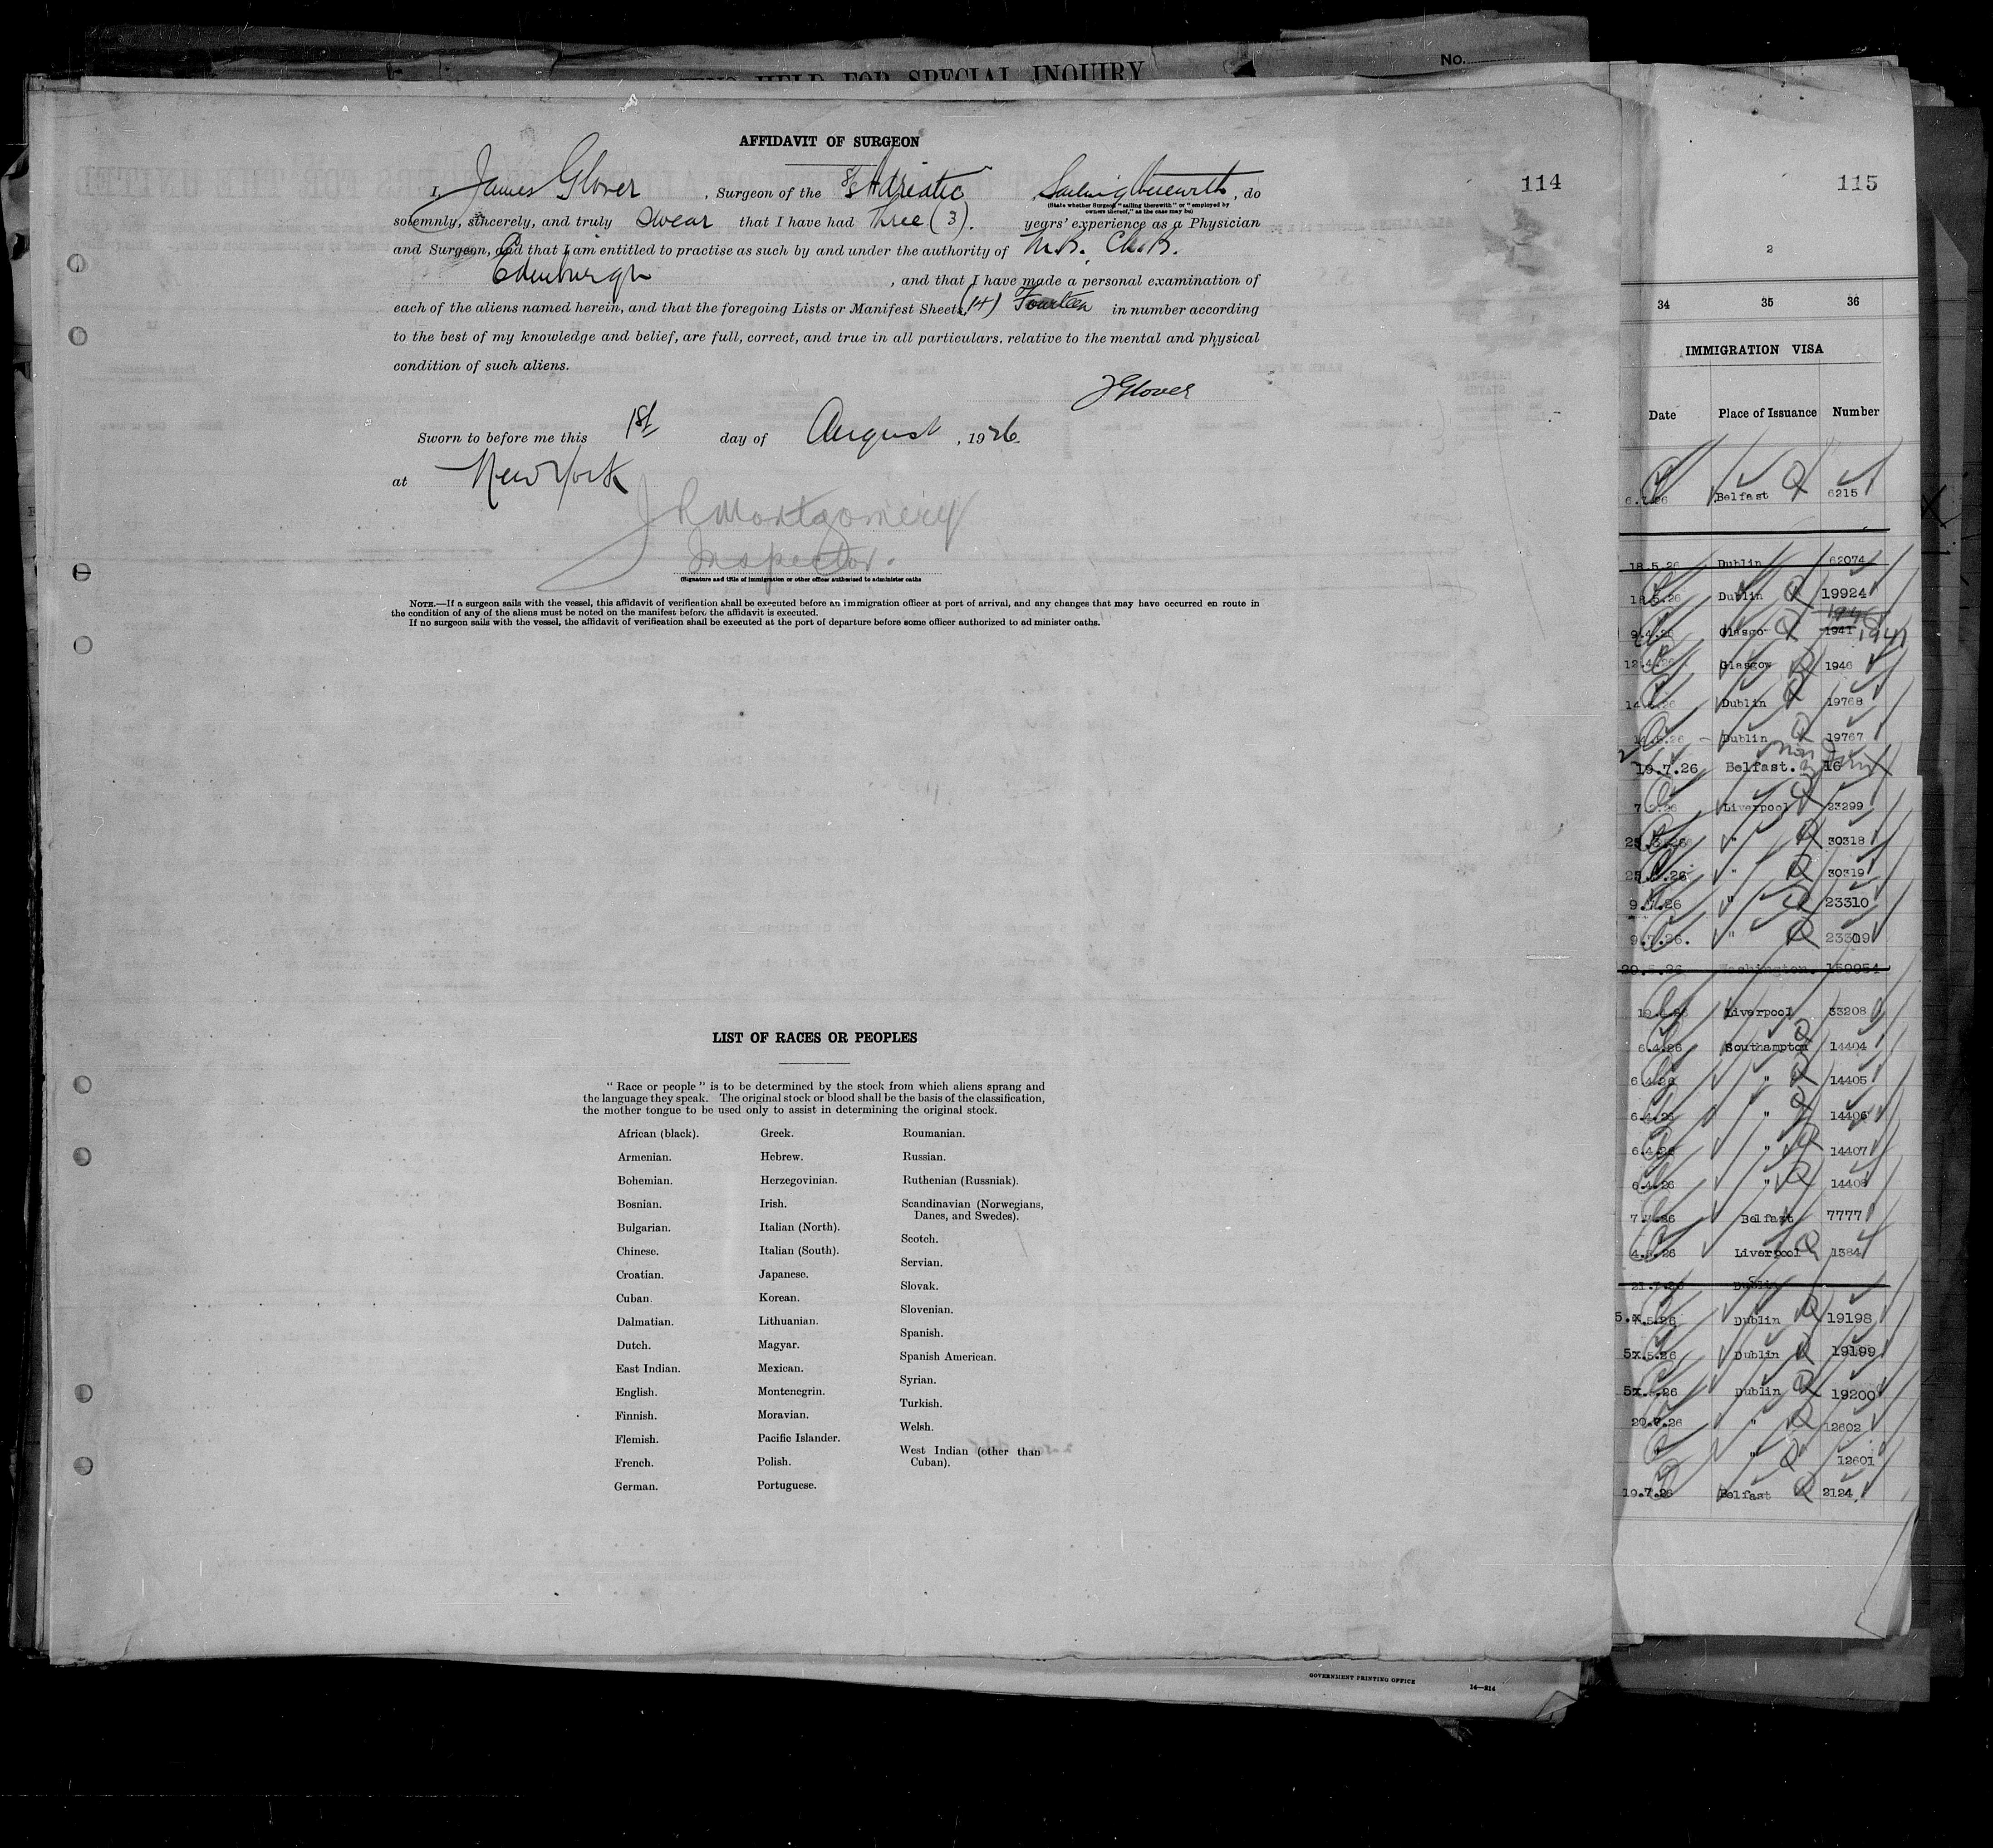 HELD FOR SPECIAL INQUIRY
No.
AFFIDAVIT OF SURGEON
114
I, James Glover, Surgeon of the S/S Adriatic, Sailing therewith, do
(State whether Surgeon "sailing therewith" or "employed by
owners thereof," as the case may be)
solemnly, sincerely, and truly swear that I have had three (3). years' experience as a Physician
and Surgeon, and that I am entitled to practise as such by and under the authority of M.B., Ch.B.
Edinburgh, and that I have made a personal examination of
each of the aliens named herein, and that the foregoing Lists or Manifest Sheets, (14) Fourteen in number according
to the best of my knowledge and belief, are full, correct, and true in all particulars, relative to the mental and physical
condition of such aliens.
J Glover
Sworn to before me this 1st day of August, 1926.
at New York
J R Montgomery
Inspector.
(Signature and title of immigration or other officer authorized to administer oaths
NOTE.—If a surgeon sails with the vessel, this affidavit of verification shall be executed before an immigration officer at port of arrival, and any changes that may have occurred en route in
the condition of any of the aliens must be noted on the manifest before the affidavit is executed.
If no surgeon sails with the vessel, the affidavit of verification shall be executed at the port of departure before some officer authorized to administer oaths.
LIST OF RACES OR PEOPLES
"Race or people" is to be determined by the stock from which aliens sprang and
the language they speak. The original stock or blood shall be the basis of the classification,
the mother tongue to be used only to assist in determining the original stock.
African (black).
Armenian.
Bohemian.
Bosnian.
Bulgarian.
Chinese.
Croatian.
Cuban.
Dalmatian.
Dutch.
East Indian.
English.
Finnish.
Flemish.
French.
German.
Greek.
Hebrew.
Herzegovinian.
Irish.
Italian (North).
Italian (South).
Japanese.
Korean.
Lithuanian.
Magyar.
Mexican.
Montenegrin.
Moravian.
Pacific Islander.
Polish.
Portuguese.
Roumanian.
Russian.
Ruthenian (Russniak).
Scandinavian (Norwegians,
Danes, and Swedes).
Scotch.
Servian.
Slovak.
Slovenian.
Spanish.
Spanish American.
Syrian.
Turkish.
Welsh.
West Indian (other than
Cuban).
GOVERNMENT PRINTING OFFICE 14—214
115
2
34 35 36
IMMIGRATION VISA
Date Place of Issuance Number
Belfast 6215
18.5.26 Dublin 62074
18.5.26 Dublin 19924
9.4.26 Glasgo 1941 1941
12.4.26 Glasgow 1946
Dublin 19768
Dublin 19767
19.7.26 Belfast. 16
Liverpool 23299
" 30318
" 30319
9.7.26 " 23310
9.7.26. " 23309
Washington. 159954
Liverpool 33208
6.4.26 Southampton 14404
6.4.26 " 14405
6.4.26 " 14406
6.4.26 " 14407
6.4.26 " 14408
7.7.26 Belfast 7777
Liverpool 1384
21.7.26 Dublin
Dublin 19198
5x.5.26 Dublin 19199
Dublin 19200
20.7.26 " 12602
" 12601
19.7.26 Belfast 2124